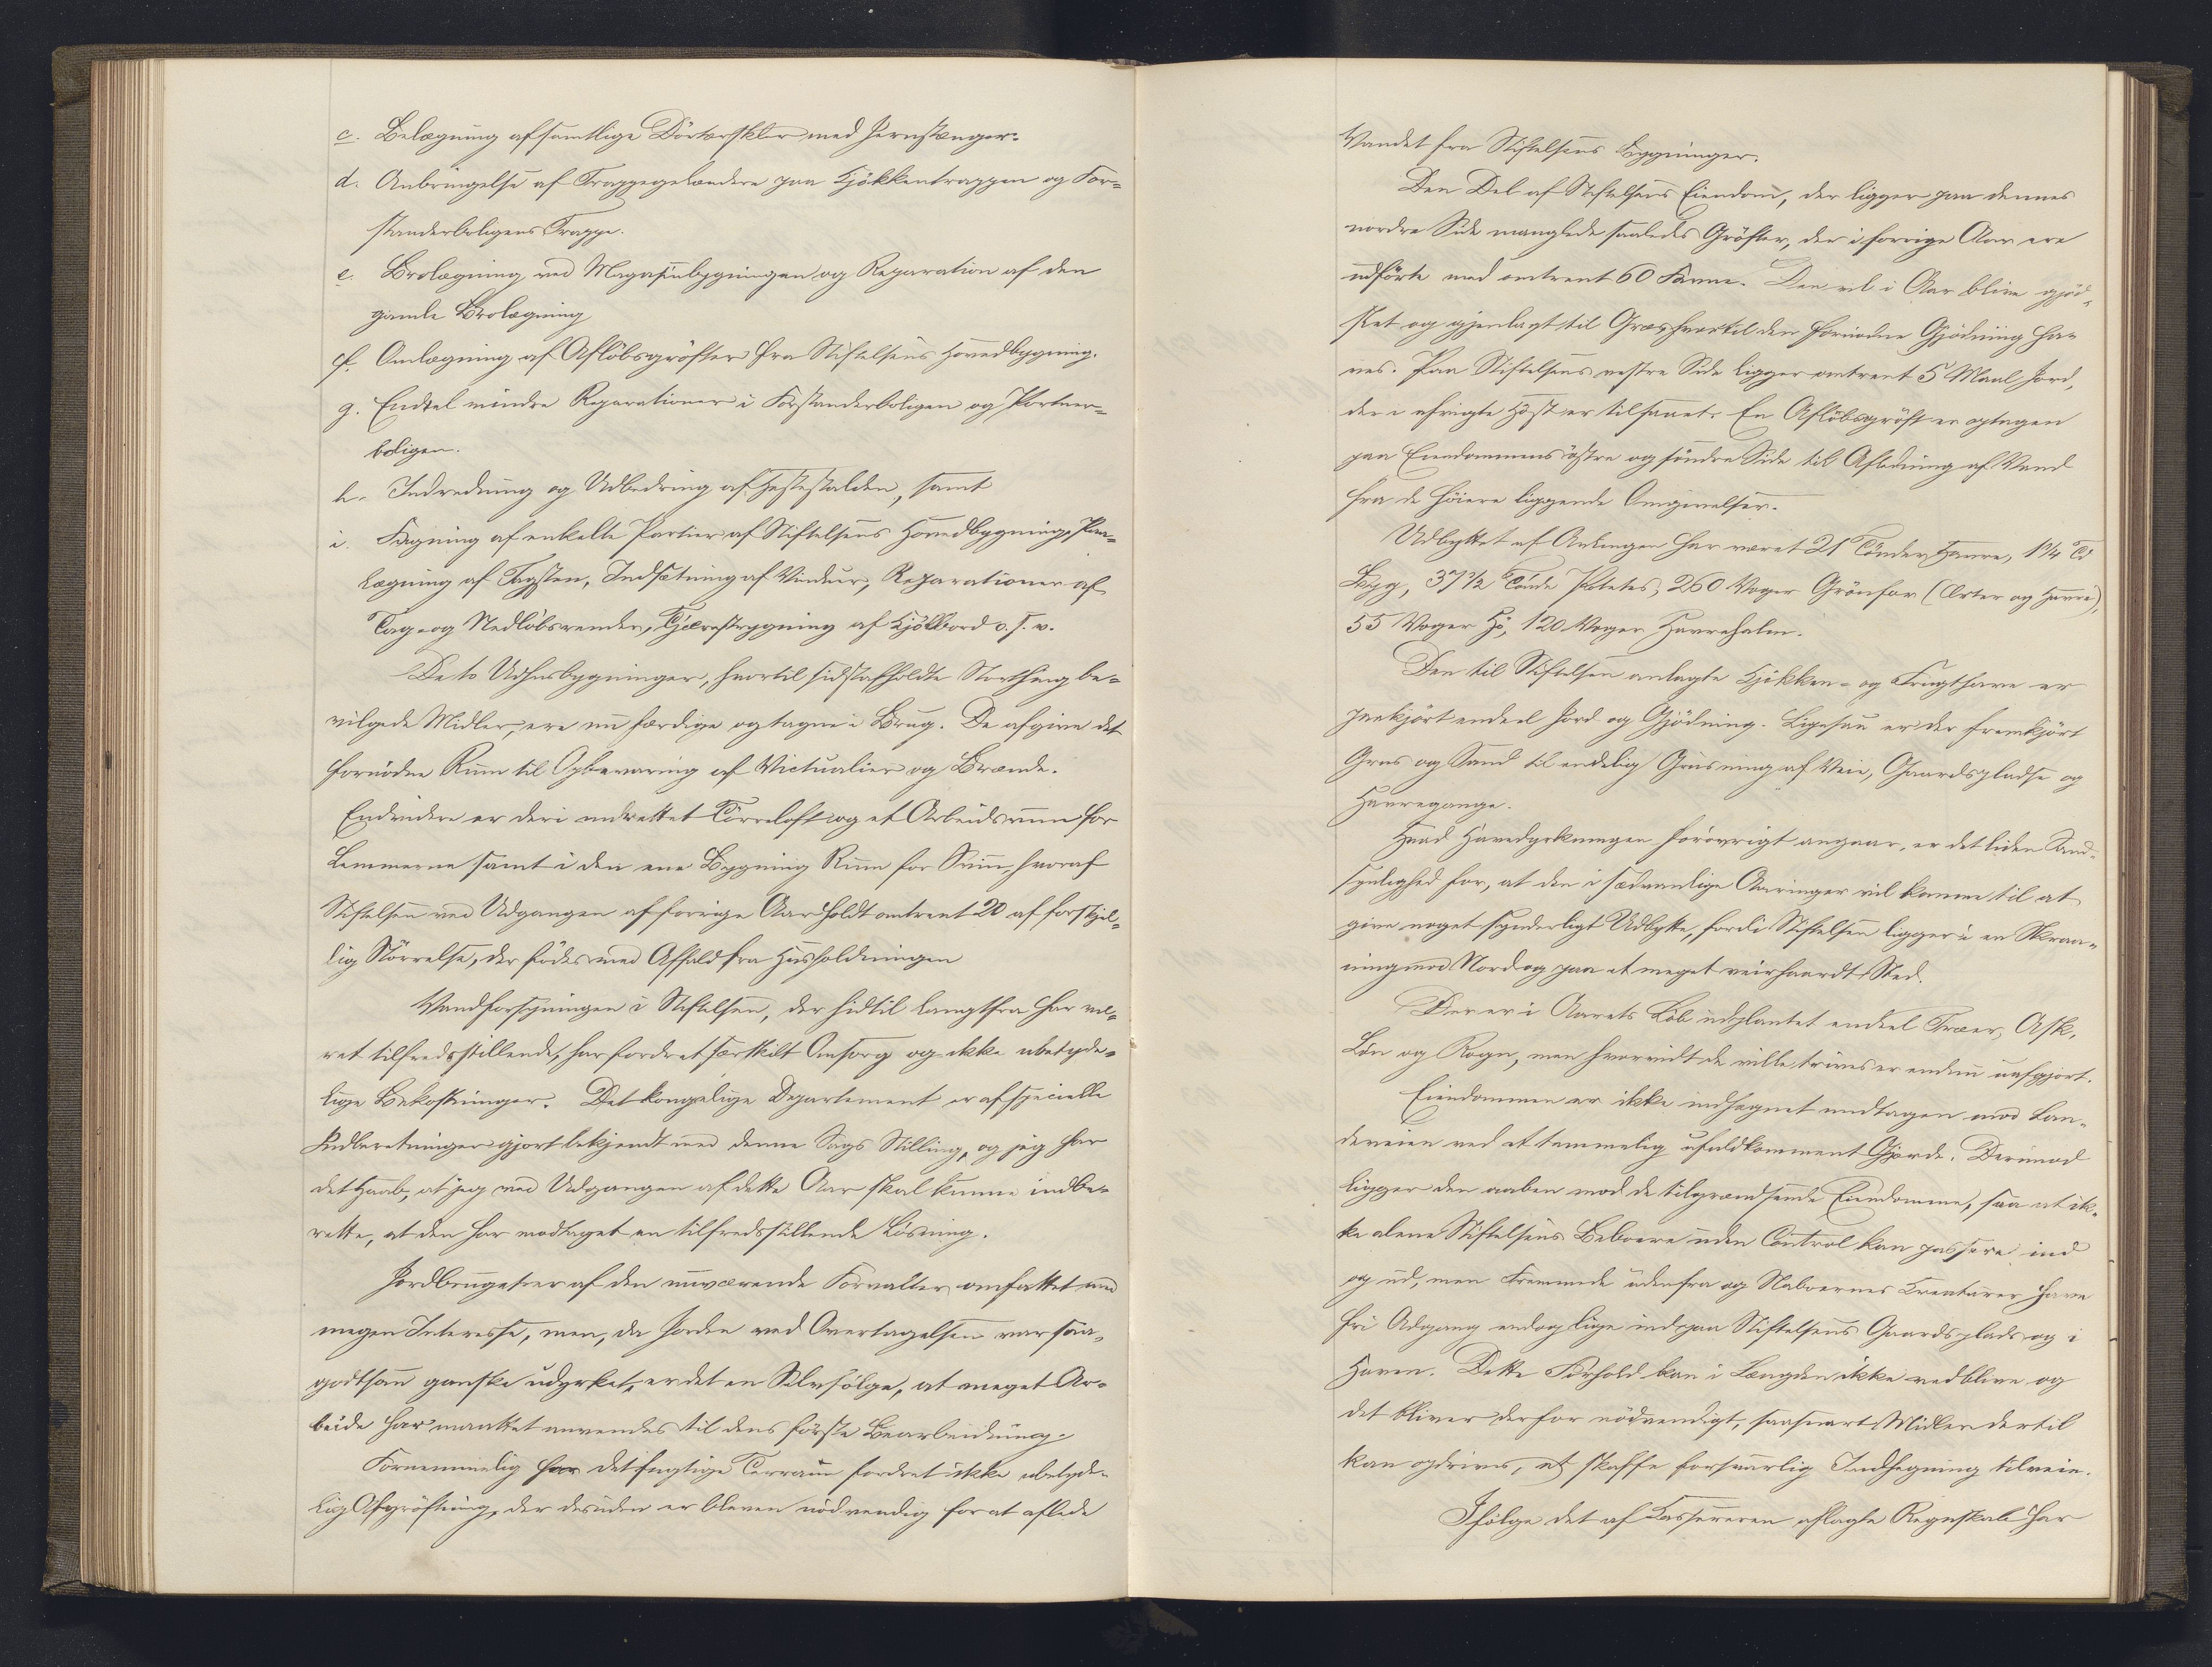 c. Belægning af samtlige Dörtærskler med Jernstænger.
d. Anbringelse af Trappegelændere paa Kjökkentrappen og For-
standerboligens Trappe.
e. Brolægning ved Magasinbygningen og Reparation af den
gamle Brolægning
f. Omlægning af Aflöbsgröfter fra Stiftelsens Hovedbygning.
g. Endeel mindre Reparationer i Forstanderboligen og Portner-
boligen.
h. Indredning og Udbedring af Hestestalden, samt
i. Fugning af enkelte Partier af Stiftelsens Hovedbygning, Paa-
lægning af Tagsten, Indsætning af Vinduer, Reparationer af
Tag- og Nedlöbsrender, Tjærestrygning af Kjölbord o. s. v.
De to Udhusbygninger, hvortil sidstafholdte Storthing be-
vilgede Midler, ere nu færdige og tagne i Brug. De afgive det
fornödne Rum til Opbevaring af Victualier og Brænde.
Endvidere er deri indrettet Törreloft og et Arbeidsrum for
Lemmerne samt i den ene Bygning Rum for Sviin, hvoraf
Stiftelsen ved Udgangen af forrige Aar holdt omtrent 20 af forskjel-
lig Störrelse, der födes med Affald fra Husholdningen
Vandforsyningen i Stiftelsen, der hidtil langtfra har væ-
ret tilfredsstillende, har fordret særskilt Omsorg og ikke ubetyde-
lige Bekostninger. Det kongelige Departement er af specielle
Indberetninger gjort bekjendt med denne Sags Stilling, og jeg har
det Haab, at jeg ved Udgangen af dette Aar skal kunne indbe-
rette, at den har modtaget en tilfredsstillende Lösning.
Jordbruget er af den nuværende Forvalter omfattet med
megen Interesse, men, da Jorden ved Overtagelsen var saa-
godtsom ganske udyrket, er det en Selvfölge, at meget Ar-
beide har maattet anvendes til dens förste Bearbeidning.
Fornemmelig har det fugtige Terrain fordret ikke ubetyde-
lig Afgröftning, der desuden er bleven nödvendig for at aflede
Vandet fra Stiftelsens Bygninger.
Den Del af Stiftelsens Eiendom, der ligger paa dennes
nordre Side manglede saaledes Gröfter, der i forrige Aar ere
udförte med omtrent 60 Favne. Den vil i Aar blive gjöd-
slet og gjenlagt til Græs, hvortil den fornödne Gjödning ha-
ves. Paa Stiftelsens vestre Side ligger omtrent 5 Maal Jord,
der i afvigte Höst er tilsaaet. En Aflöbsgröft er optagen
paa Eiendommens östre og söndre Side til Afledning af Vand
fra de höiere liggende Omgivelser.
Udbyttet af Avlingen har været 21 Tönder Havre, 1¼ Td
Byg, 37½ Tönde Potetes, 260 Voger Grönfor (Erter og Havre),
55 Voger Hö, 120 Voger Havrehalm.
Den til Stiftelsen anlagte Kjökken- og Frugthave er
paakjört endeel Jord og Gjödning. Ligesaa er der fremkjört
Grus og Sand til endelig Grusning af Veie, Gaardspladse og
Havegange.
Hvad Havedyrkningen forövrigt angaar, er det liden Sand-
synlighed for, at den i sædvanlige Aaringer vil komme til at
give noget synderligt Udbytte, fordi Stiftelsen ligger i en Skraa-
ning mod Nord og paa et meget veirhaardt Sted.
Der er i Aarets Löb udplantet endeel Træer, Ask,
Lön og Rogn, men hvorvidt de ville trives er endnu uafgjort.
Eiendommen er ikke indhegnet undtagen mod Lan-
deveien ved et temmelig ufuldkomment Gjerde. Derimod
ligger den aaben mod de tilgrændsende Eiendomme, saa at ik-
ke alene Stiftelsens Beboere uden Control kan passere ind
og ud, men Fremmede udenfra og Naboernes Creaturer have
fri Adgang endog lige ind paa Stiftelsens Gaardsplads og i
Haven. Dette Forhold kan i Længden ikke vedblive og
det bliver derfor nödvendigt, saasnart Midler dertil
kan opdrives, at skaffe forsvarlig Indhegning tilveie.
Ifölge det af Kassereren aflagte Regnskab har